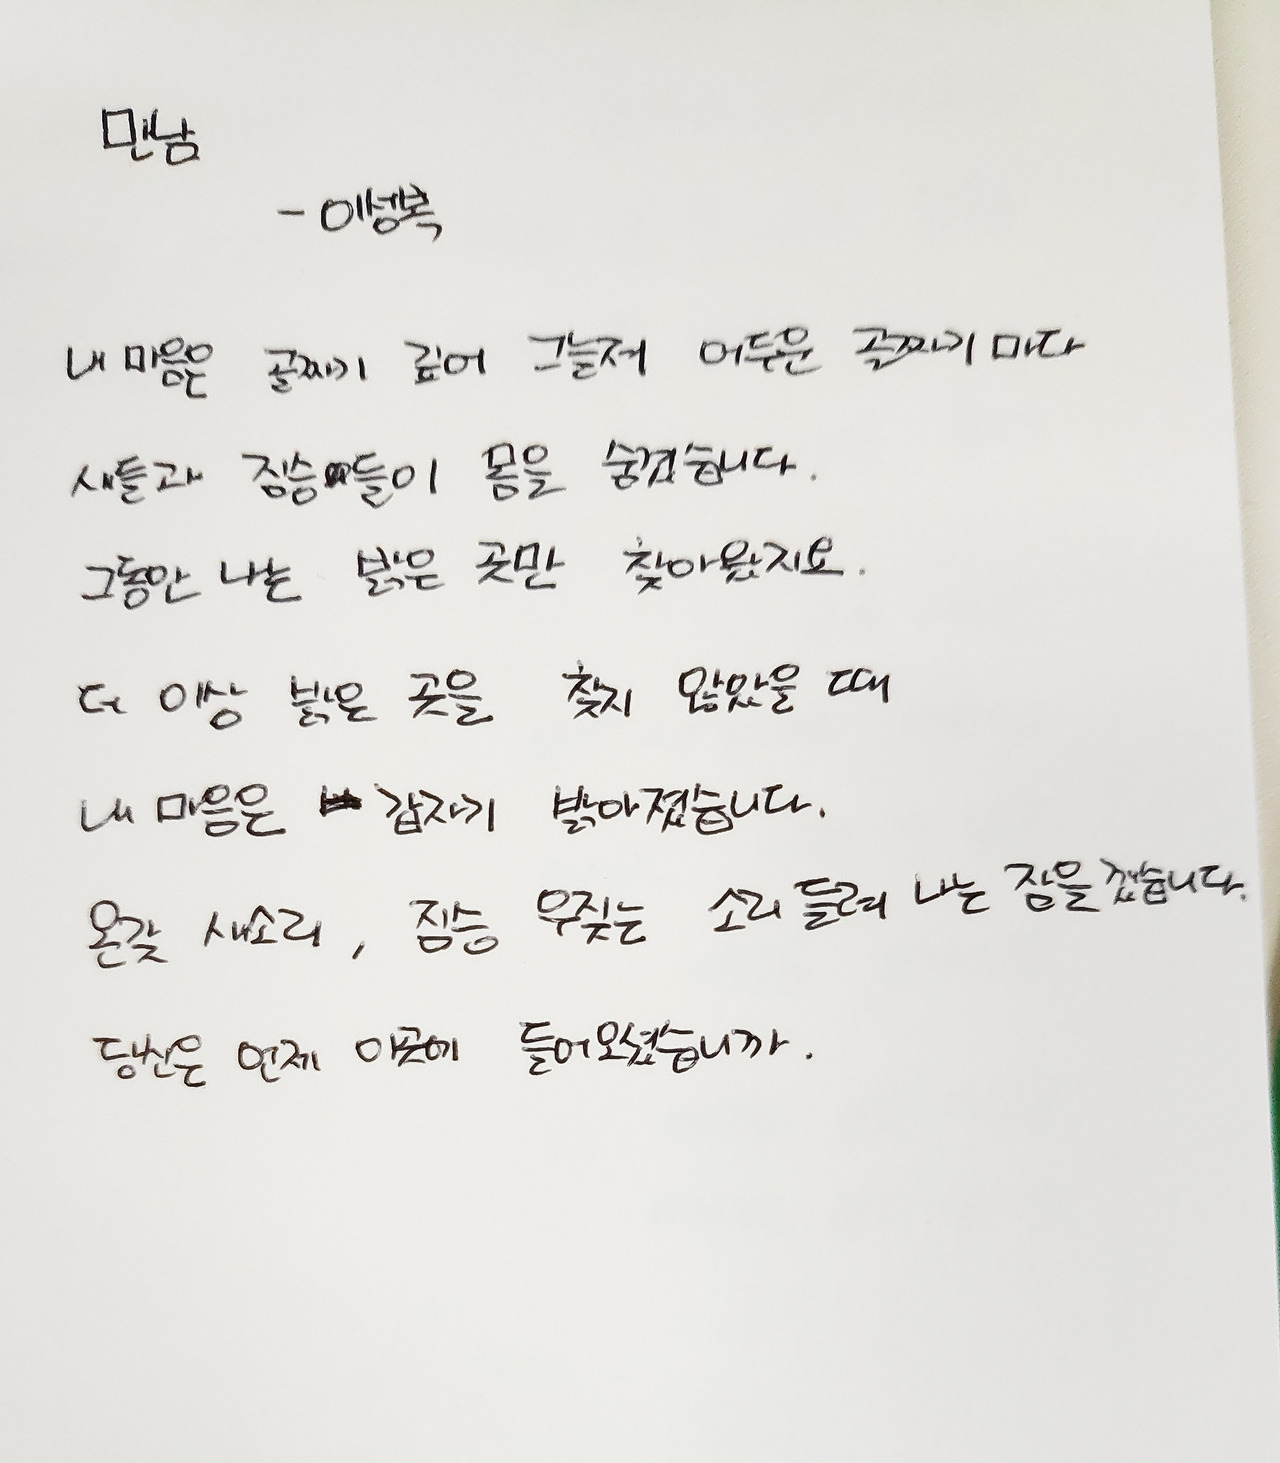 만남
- 이성복
내 마음은 골짜기 깊어 그늘져 어두운 골짜기마다
새들과 짐승들이 몸을 숨겼습니다.
그동안 나는 밝은 곳만 찾아왔지요.
더 이상 밝은 곳을 찾지 않았을 때
내 마음은 갑자기 밝아졌습니다.
온갖 새소리, 짐승 우짖는 소리 들려 나는 잠을 깼습니다.
당신은 언제 이곳에 들어오셨습니까.